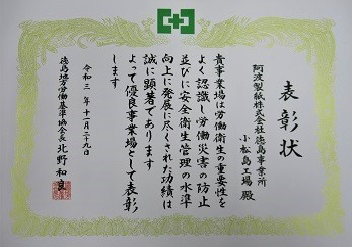 表彰状
阿波製紙株式会社徳島事業所
小松島工場 殿
貴事業場は労働衛生の重要性を
よく認識し労働災害の防止
並びに安全衛生管理の水準
向上に発展に尽くされた功績は
誠に顕著であります
よって優良事業場として表彰
します
令和三年十一月二十九日
徳島地方労働基準協会長 北野和良